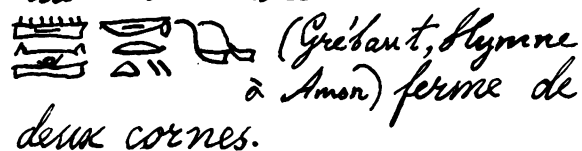 (Grébaut, Hymne
à Amon) ferme de
deux cornes.